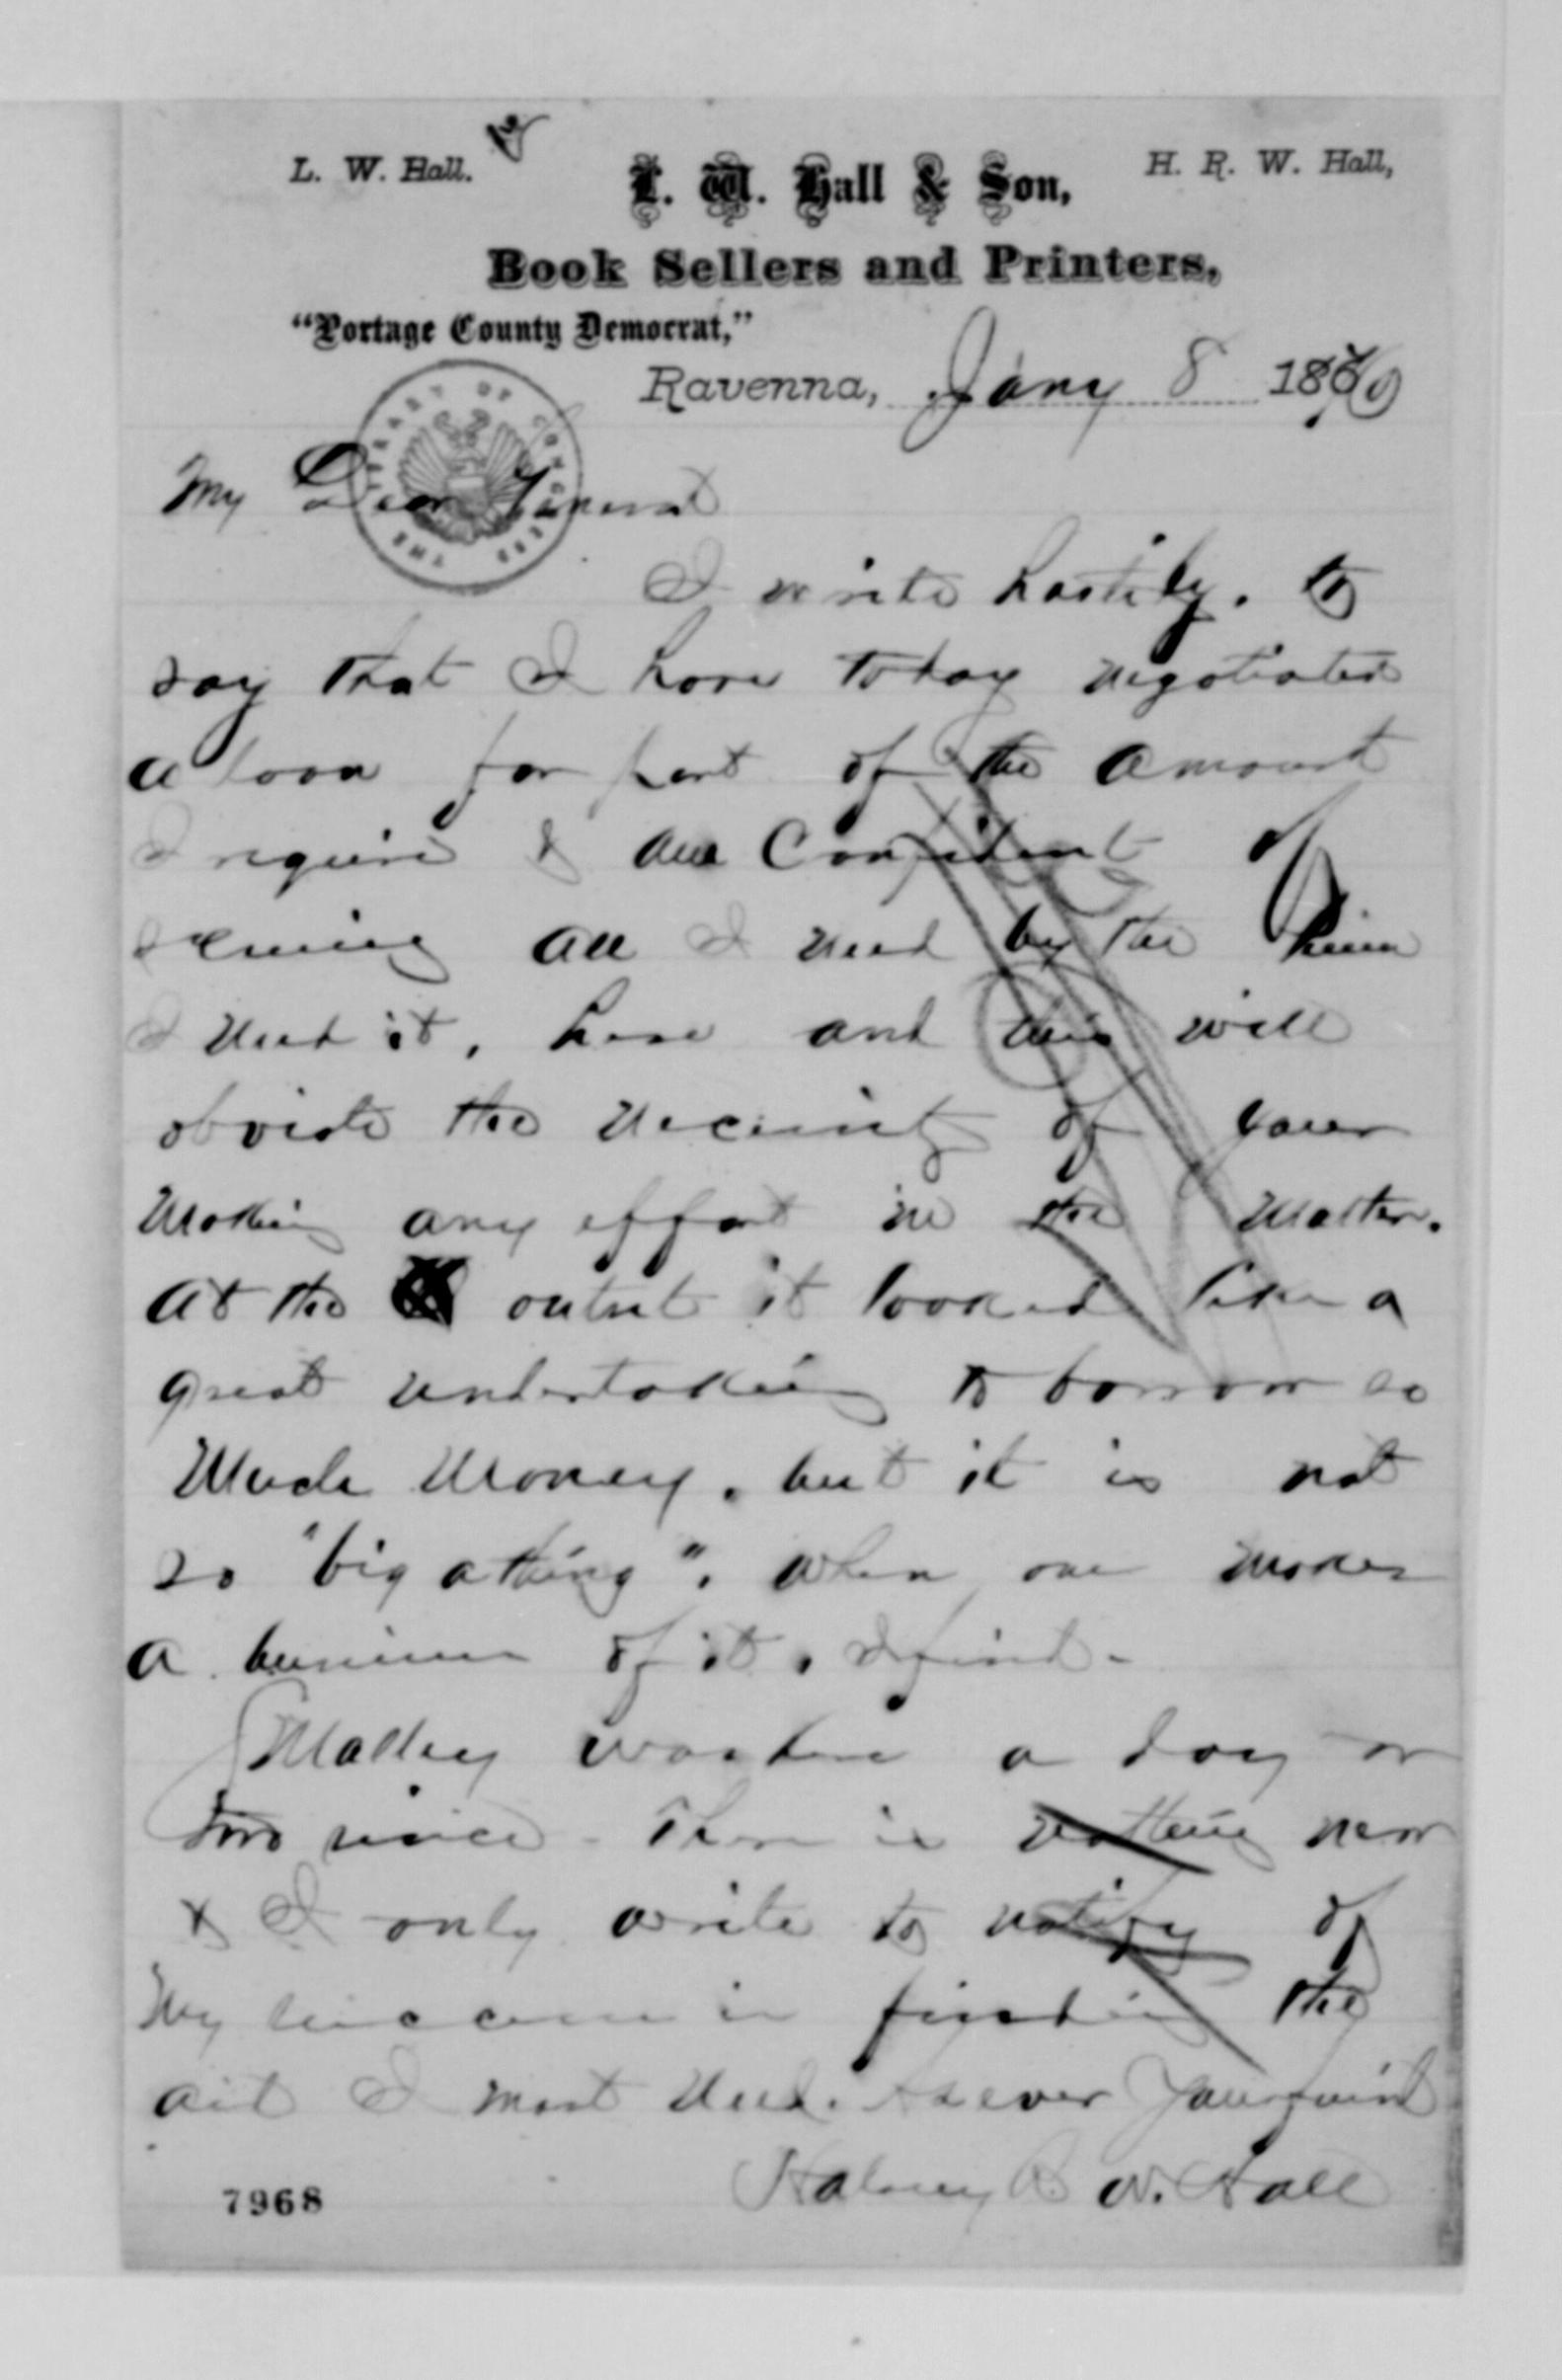 L. W. Hall.
L. W. Hall & Son,
H. R. W. Hall,
Book Sellers and Printers,
"Portage County Democrat,"
Ravenna, Jany 8 1870
THE LIBRARY OF CONGRESS
My Dear General
I write hastily. to
say that I have today negotiated
a loan for part of the amount
I require & am Confident of
securing all I need by the time
I need it, here and this will
obviate the necessity of your
making any effort in the matter.
At the outset it looked like a
great undertaking to borrow so
much money, but it is not
so "big a thing", when one makes
a business of it, I find.
Smalley was here a day or
two since. There is nothing new
& I only write to notify of
my success in finding the
aid I most need. As ever Your friend
Halsey R. W. Hall
7968